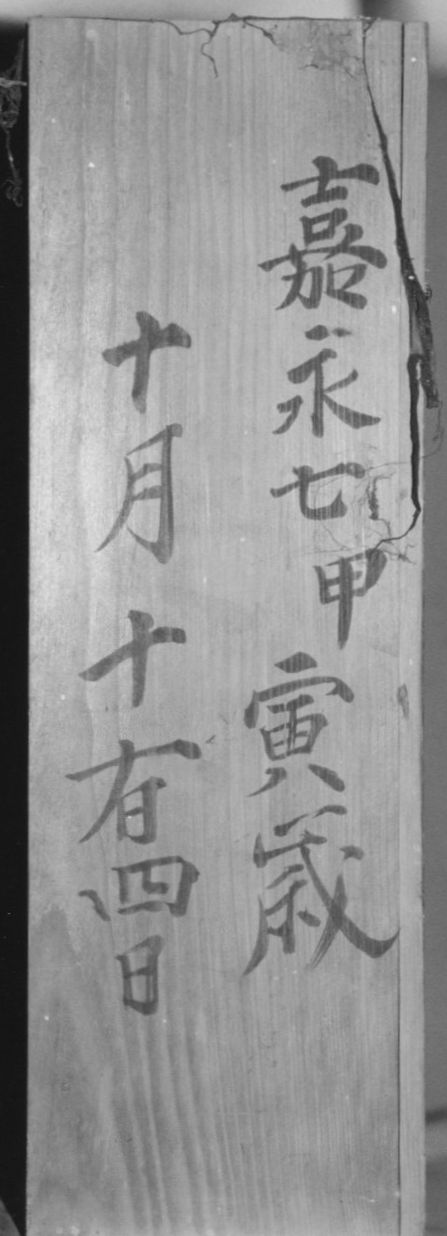 嘉永七甲寅歳
十月十有四日